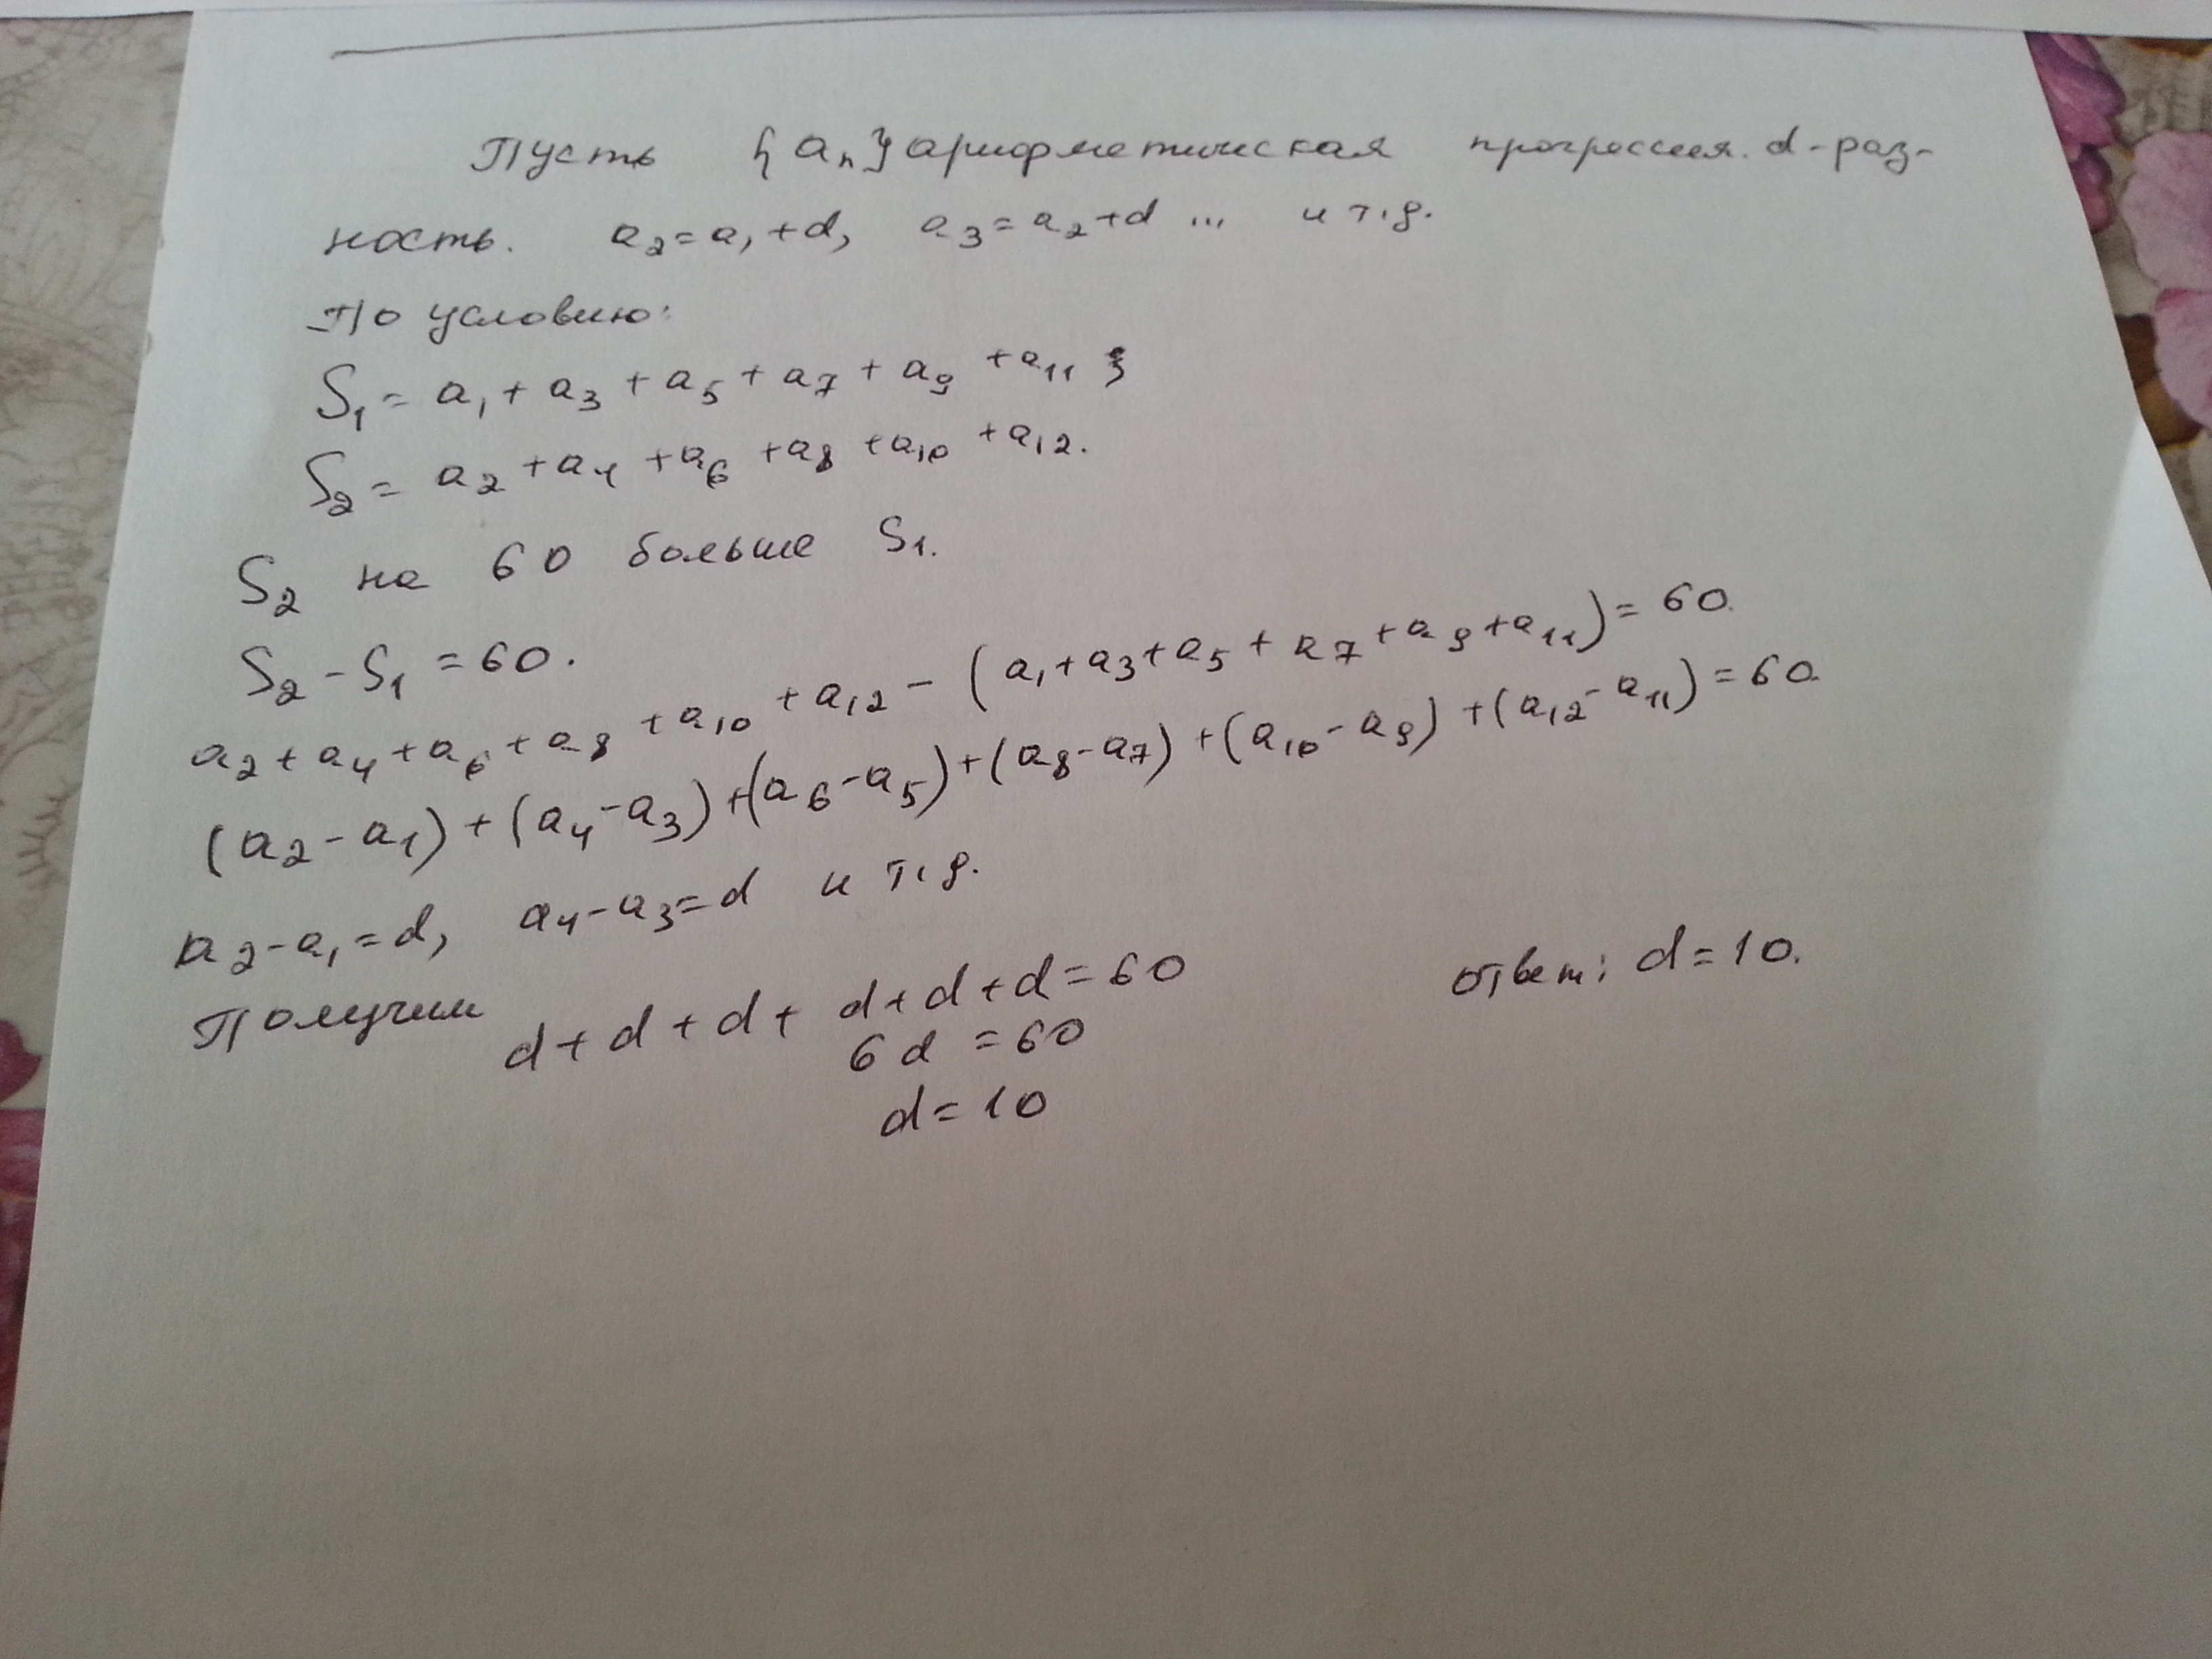 Пусть {aₙ} арифметическая прогрессия. d - раз-
ность. a₂ = a₁ + d, a₃ = a₂ + d ... и т.д.
По условию:
S₁ = a₁ + a₃ + a₅ + a₇ + a₉ + a₁₁ ;
S₂ = a₂ + a₄ + a₆ + a₈ + a₁₀ + a₁₂.
S₂ на 60 больше S₁.
S₂ - S₁ = 60.
a₂ + a₄ + a₆ + a₈ + a₁₀ + a₁₂ - (a₁ + a₃ + a₅ + a₇ + a₉ + a₁₁) = 60.
(a₂ - a₁) + (a₄ - a₃) + (a₆ - a₅) + (a₈ - a₇) + (a₁₀ - a₉) + (a₁₂ - a₁₁) = 60.
a₂ - a₁ = d, a₄ - a₃ = d и т.д.
Получим d + d + d + d + d + d = 60
6d = 60
d = 10
ответ: d = 10.